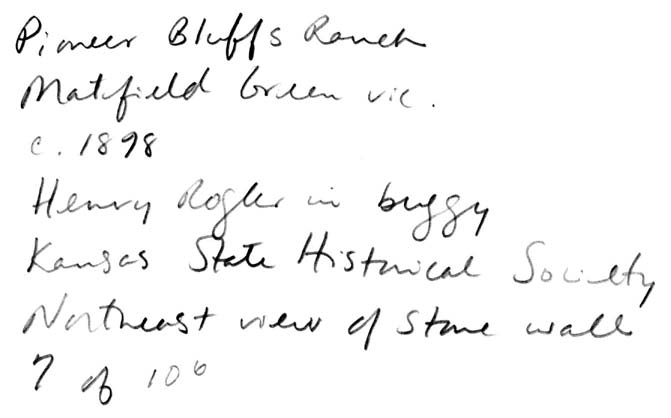 Pioneer Bluffs Ranch
Matfield Green vic.
c. 1898
Henry Rogler in buggy
Kansas State Historical Society
Northeast view of stone wall
7 of 106